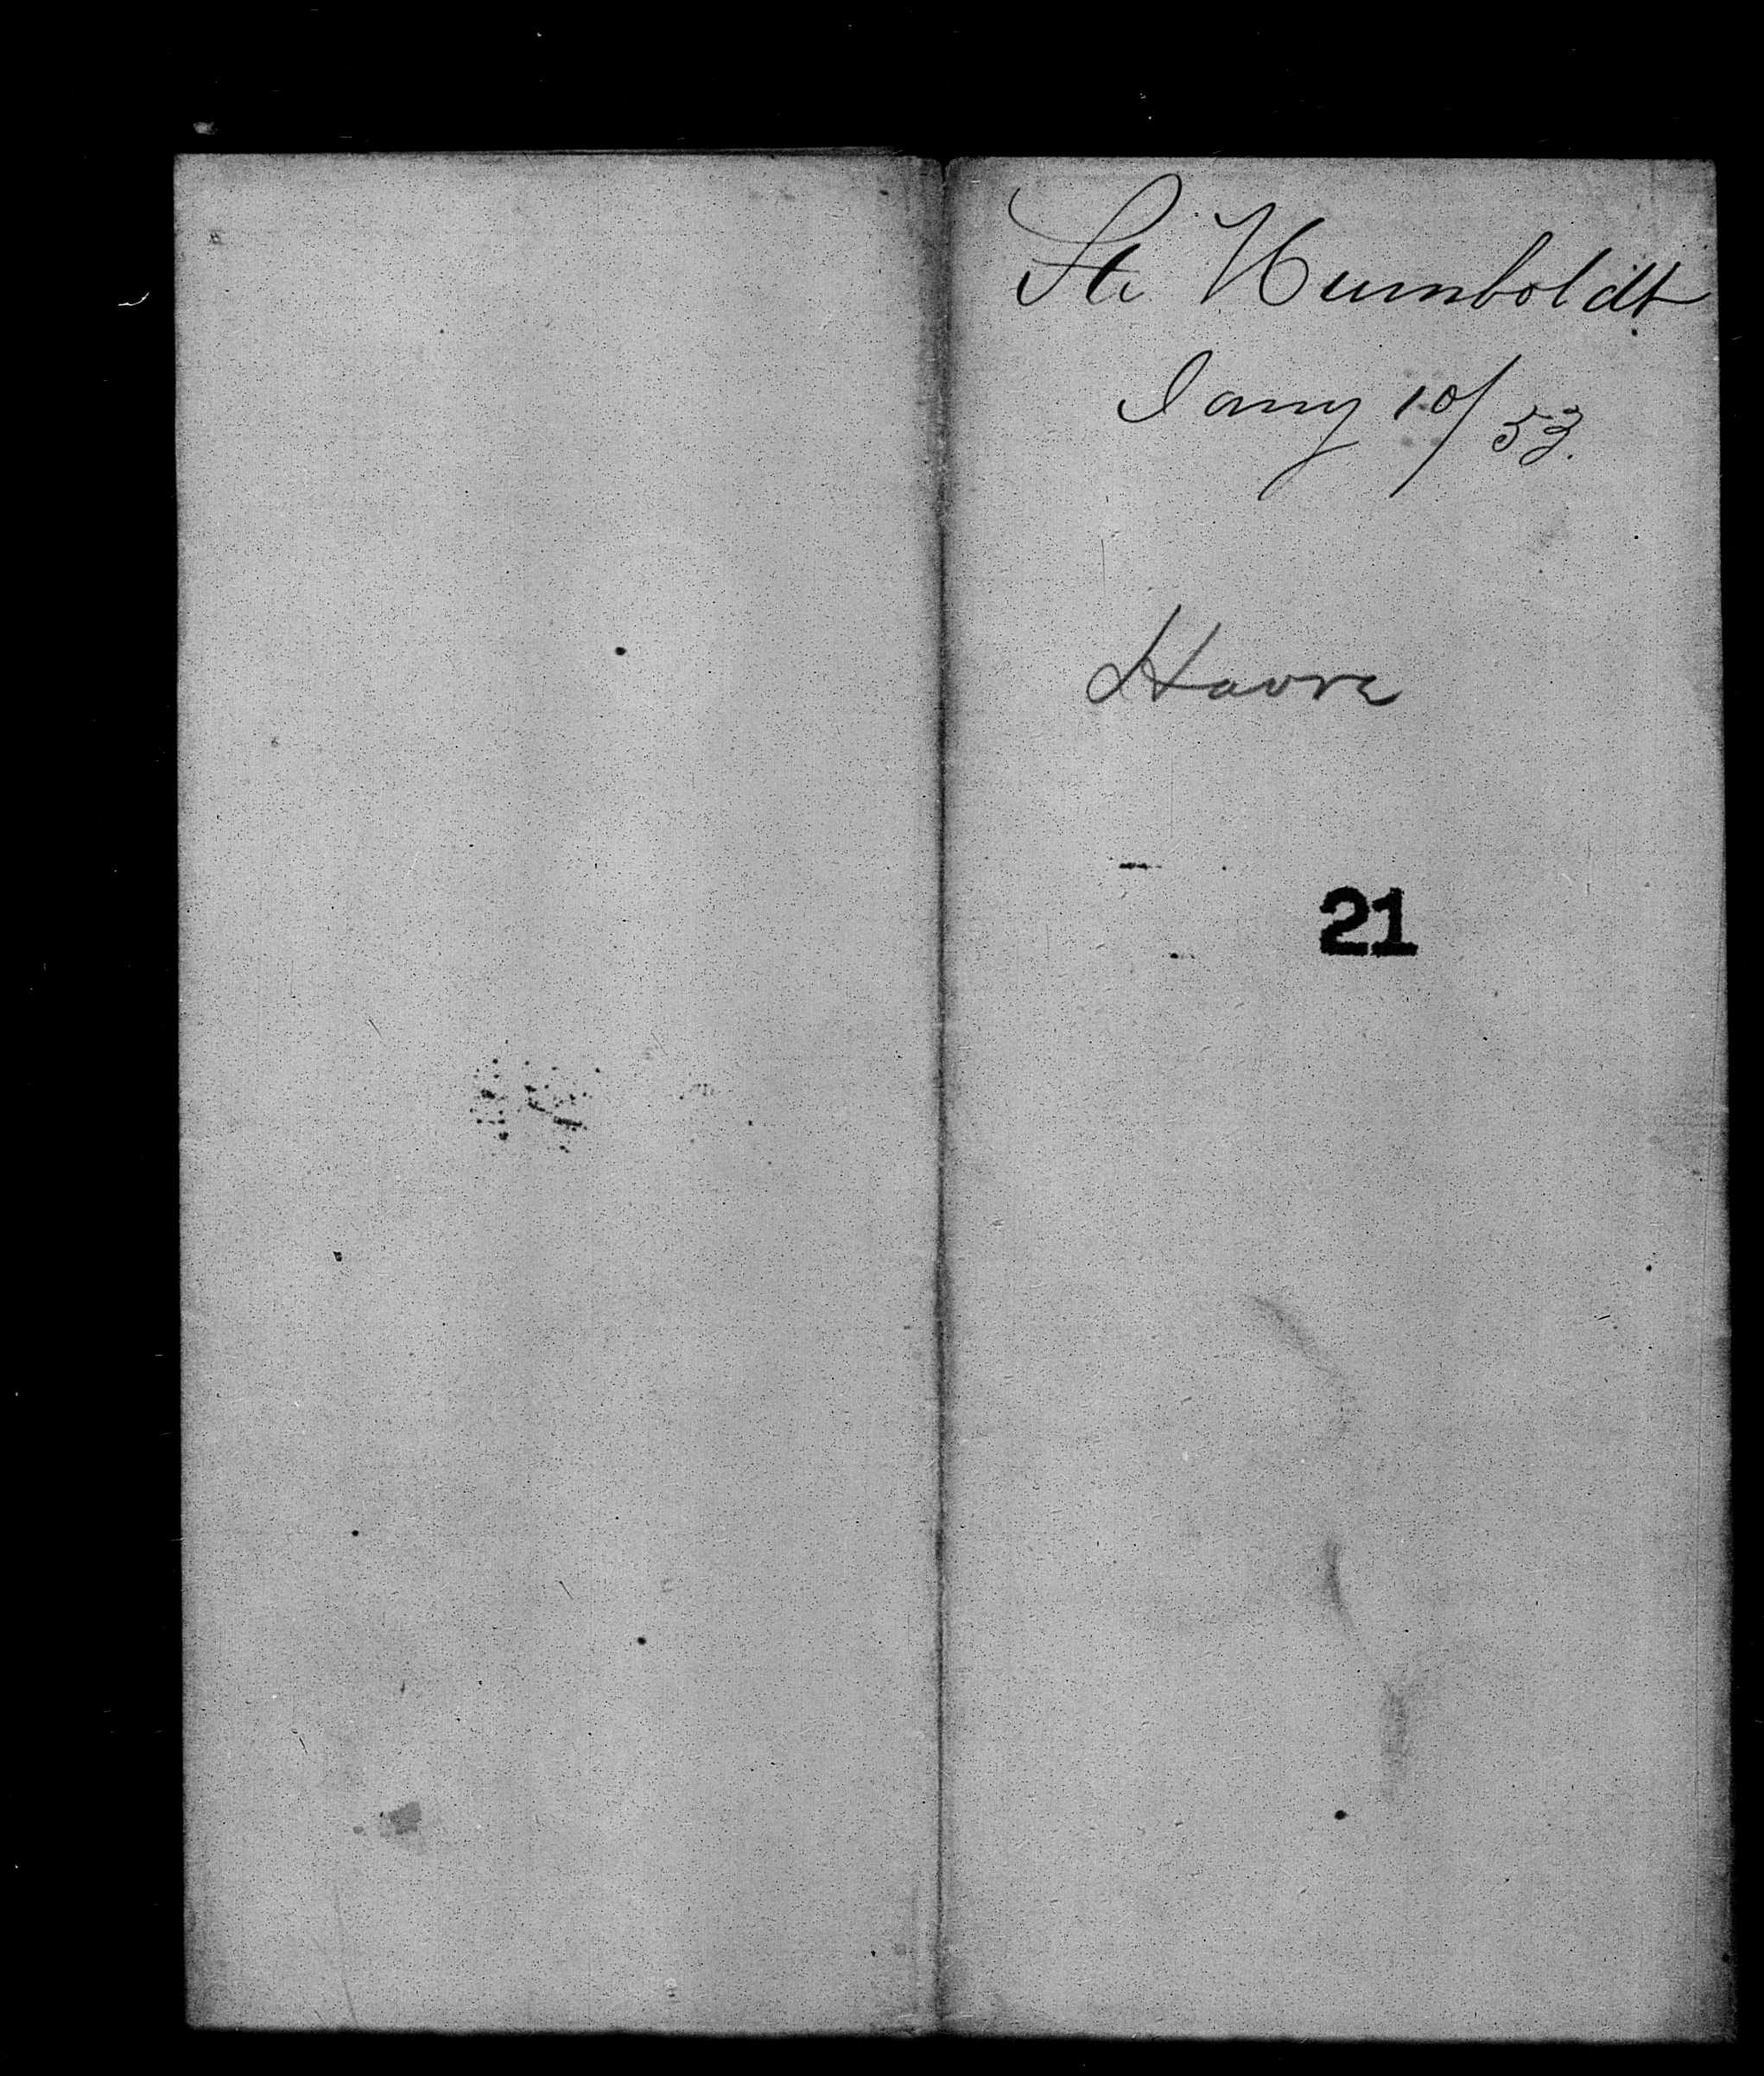 St. Humboldt
Jany 10/53.
Havre
21